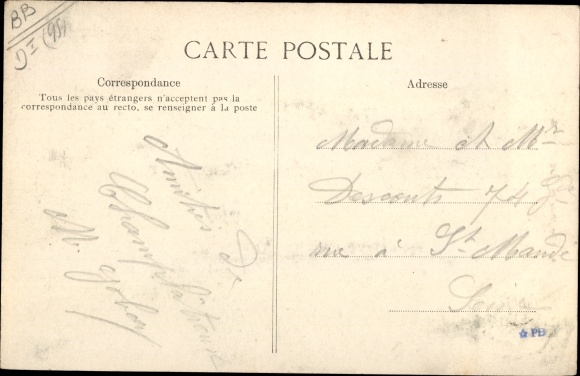 BB
DI (95)
CARTE POSTALE
Correspondance
Tous les pays étrangers n'acceptent pas la
correspondance au recto, se renseigner à la poste
Amitiés de
Champlâtreux
M.
Adresse
Madame et Mr
Descouts 74 Gde
rue à St Mandé
Seine
PB